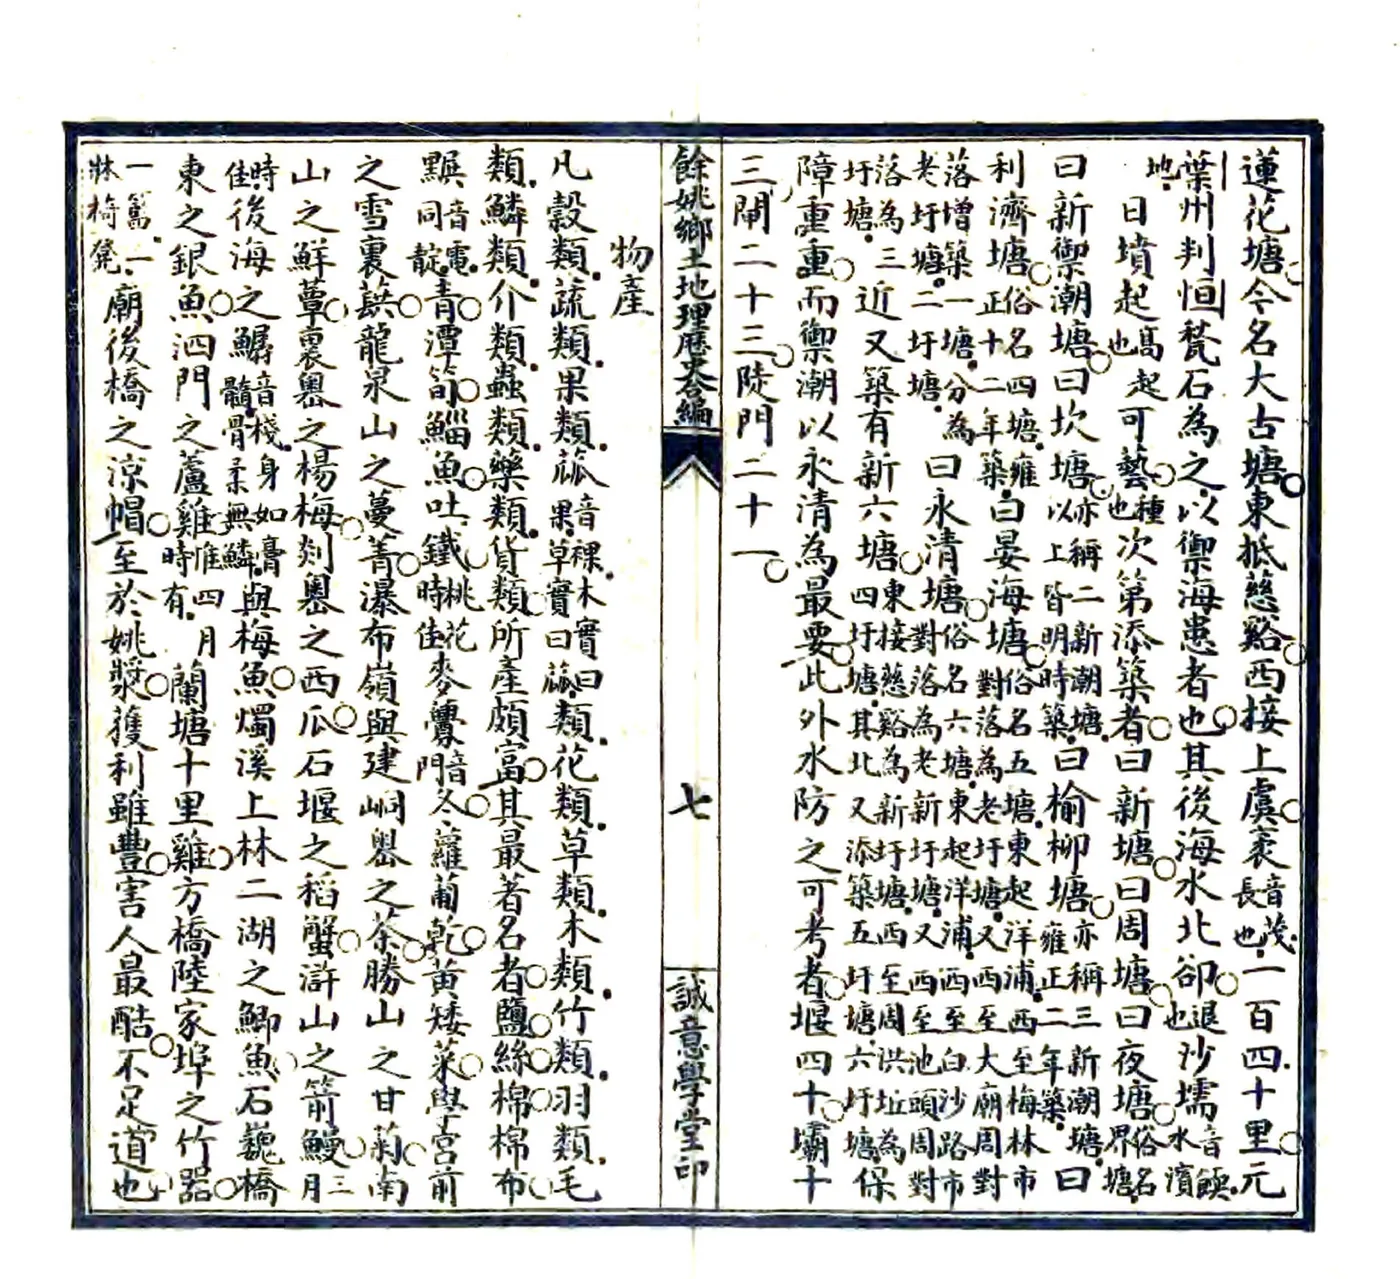 蓮花塘今名大古塘東抵慈谿西接上虞袤音茂長也一百四十里元
葉州判恒甃石為之以禦海患者也其後海水北卻退也沙壖音䎡水濱
地日墳起高也起可藝種也次第添築者曰新塘曰周塘曰夜塘俗名界塘
曰新禦潮塘曰坎塘亦稱二新潮塘以上皆明時築曰榆柳塘亦稱三新潮塘雍正二年築曰
利濟塘俗名四塘雍正十二年築曰晏海塘俗名五塘東起洋浦西至梅林市對落為老圩塘又西至大廟周對
落增築一塘分為老圩塘二圩塘曰永清塘俗名六塘東起洋浦西至白沙路市對落為老新圩塘又西至池頭周對
落為三圩塘近又築有新六塘東接慈谿為新圩塘西至周洪址為四圩塘其北又添築五圩塘六圩塘保
障重重而禦潮以永清為最要此外水防之可考者堰四十壩十
三閘二十三陡門二十一
餘姚鄉土地理歷史合編
七
誠意學堂印
物產
凡穀類蔬類果類蓏音裸木實曰果草實曰蓏類花類草類木類竹類羽類毛
類鱗類介類蟲類藥類貨類所產頗富其最著名者鹽絲棉棉布
靛青潭筍鯔魚吐鐵桃花時佳麥虋音門冬蘿蔔乾黃矮菜學宮前
之雪裏蕻龍泉山之蔓菁瀑布嶺與建峒嶴之茶勝山之甘菊南
山之鮮蕈裏嶴之楊梅剡嶴之西瓜石堰之稻蟹滸山之箭鰻三月
時佳後海之鱘音棧身如膏髓骨柔無鱗與梅魚燭溪上林二湖之鯽魚石巍橋
東之銀魚泗門之蘆雞惟四月時有蘭塘十里雞方橋陸家埠之竹器
一篙一牀椅凳廟後橋之涼帽至於姚漿獲利雖豐害人最酷不足道也